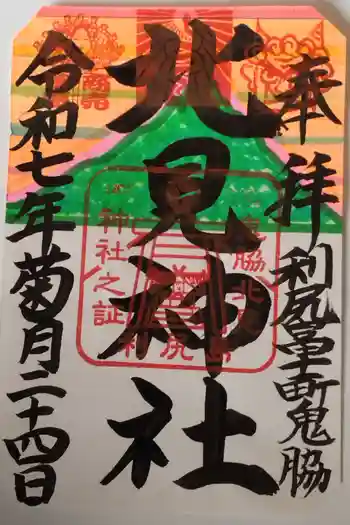 奉拝
利尻富士町鬼脇
北見神社
令和七年菊月二十四日
神社之証